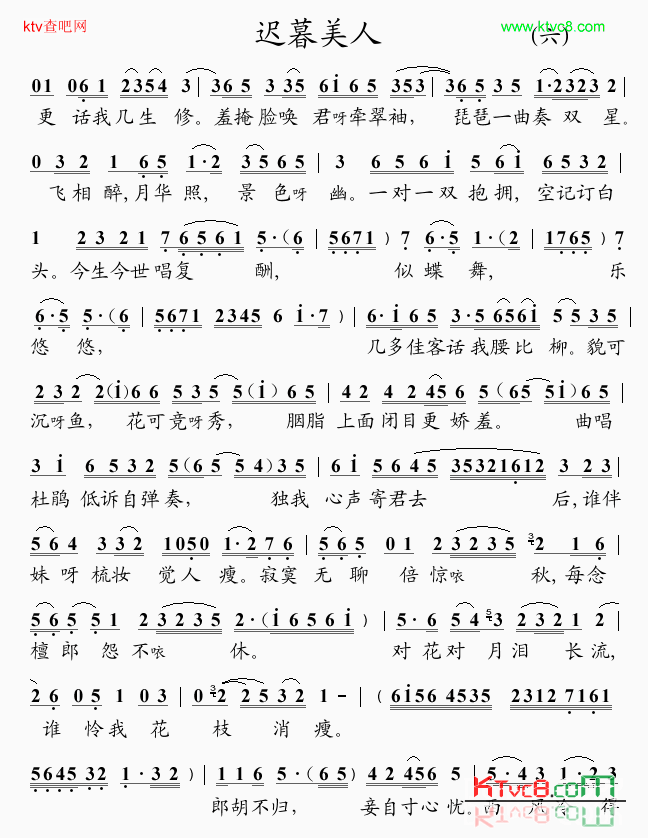 ktv查吧网
迟暮美人
(六)
www.ktvc8.com
01 061 2354 3 | 365 3 35 6i 65 353 | 365 35 1·2323 2 |
更 话我几生 修。羞掩脸唤 君呀牵翠袖, 琵琶一曲奏 双 星。
0 32 1 65 1·2 3565 | 3 65 6i 5 6i 6532 |
飞相 醉,月华 照, 景 色呀 幽。一对一双 抱拥, 空记订白
1 23 21 7 6561 5·(6 | 5671) 7 6·5 1·(2 | 1765) 7
头。今生今世唱复 酬, 似 蝶 舞, 乐
6·5 5·(6 | 5671 2345 6 i·7 ) | 6·i 65 3·5 656i 5535 |
悠 悠, 几多佳客话我腰比 柳。貌可
232 2(i)66 535 5(i)65 | 42 4 2456 5(65 5i)65 |
沉呀鱼, 花可竞呀秀, 胭脂 上面闭目更 娇羞。 曲唱
3 i 6532 5(65 54)35 | i 5645 35321612 323 |
杜鹃 低诉自弹奏, 独我 心声寄君去 后,谁伴
564 332 1050 1·276 | 565 01 23235 2 1 6
妹呀梳妆 觉人 瘦。寂寞 无聊 倍惊咴 秋,每念
56551 23235 2·(i656i ) | 5·6 54 3 2321 2
檀郎 怨不咴 休。 对花对 月泪 长流,
26 05 1 03 | 03 22532 1 – | (6i56 4535 2312 7161
谁 怜我 花 枝 消 瘦。
5645 32 1·332) | 116 5·35) 42 456 5 | 5·43
郎胡不归, 妾自寸心忧。
KTvc8.com